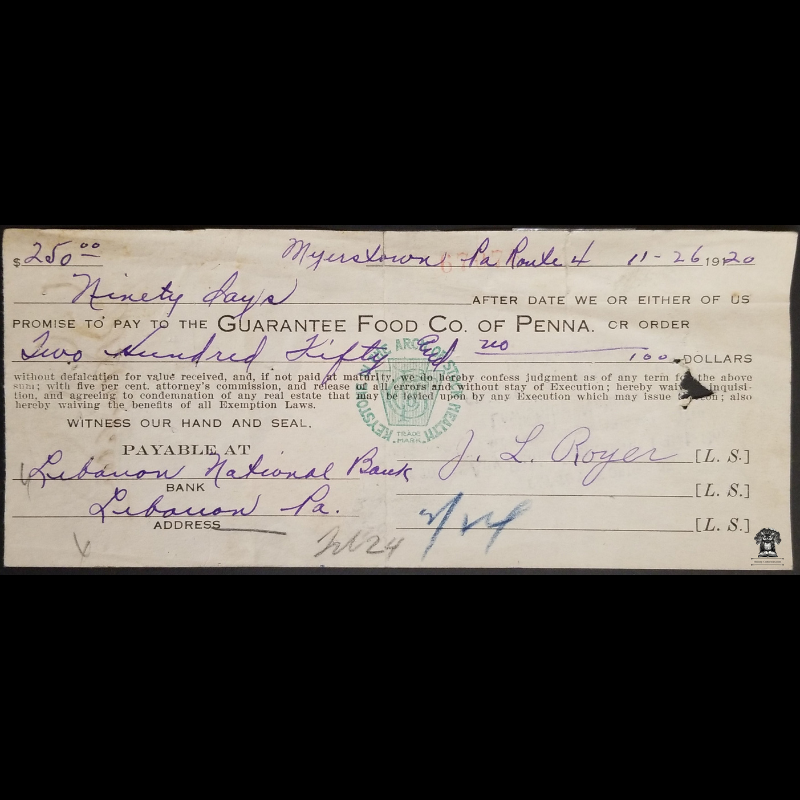 $250 00 Myerstown Pa Route 4 11-26 1920
Ninety Days AFTER DATE WE OR EITHER OF US
PROMISE TO PAY TO THE GUARANTEE FOOD CO. OF PENNA. OR ORDER
Two Hundred Fifty and no 100 DOLLARS
without defalcation for value received, and, if not paid at maturity, we do hereby confess judgment as of any term for the above
sum; with five per cent. attorney's commission, and release of all errors and without stay of Execution; hereby waive inquisi-
tion, and agreeing to condemnation of any real estate that may be levied upon by any Execution which may issue also
hereby waiving the benefits of all Exemption Laws.
KEYSTONE ARCH OF HEALTH
TRADE
MARK
WITNESS OUR HAND AND SEAL.
PAYABLE AT
Lebanon National Bank
BANK
Lebanon Pa.
ADDRESS
J. L. Royer [L. S.]
[L. S.]
[L. S.]
2/24